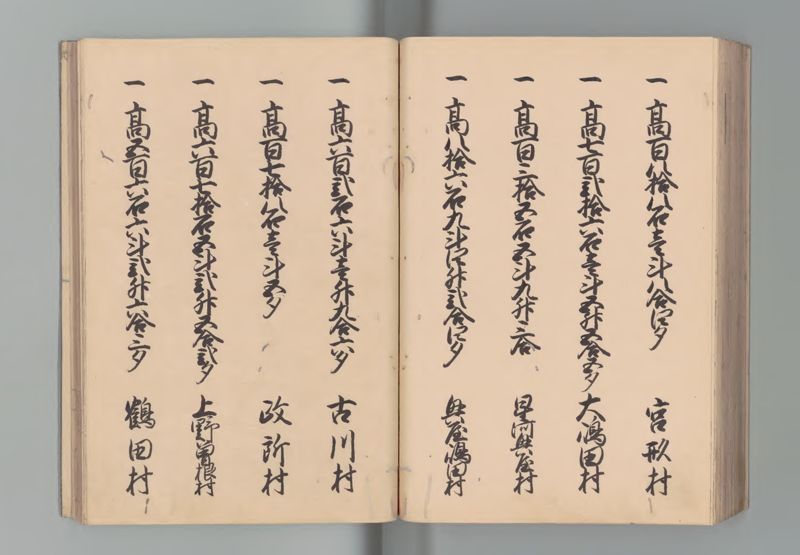 一 高百八拾八石壱斗八合四夕 宮形村
一 高七百弐拾六石壱斗五升五合五夕 大嶋田村
一 高百三拾五石五斗九升三合 星河興屋村
一 高八拾六石九斗四升弐合四夕 興屋嶋田村
一 高六百弐石六斗壱升九合六夕 古川村
一 高百七拾八石壱斗五夕 政所村
一 高六百七拾石五斗弐升五合弐夕 上野曽根村
一 高五百六石六斗弐升六合三夕 鶴田村